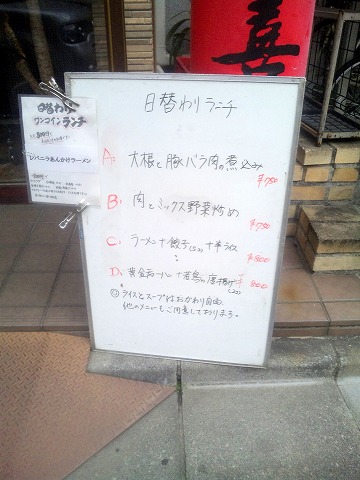 喜
日替わり
ワンコインランチ
ジャンボニラあんかけラーメン
日替わりランチ
A: 大根と豚バラ肉の煮込み
¥750
B: 肉とミックス野菜炒め
¥750
C: ラーメン+餃子(5コ)+半ライス
¥800
D: 黄金チャーハン+若鳥の唐揚げ(2コ)
¥800
◎ライスとスープはおかわり自由
他のメニューもご用意しております。